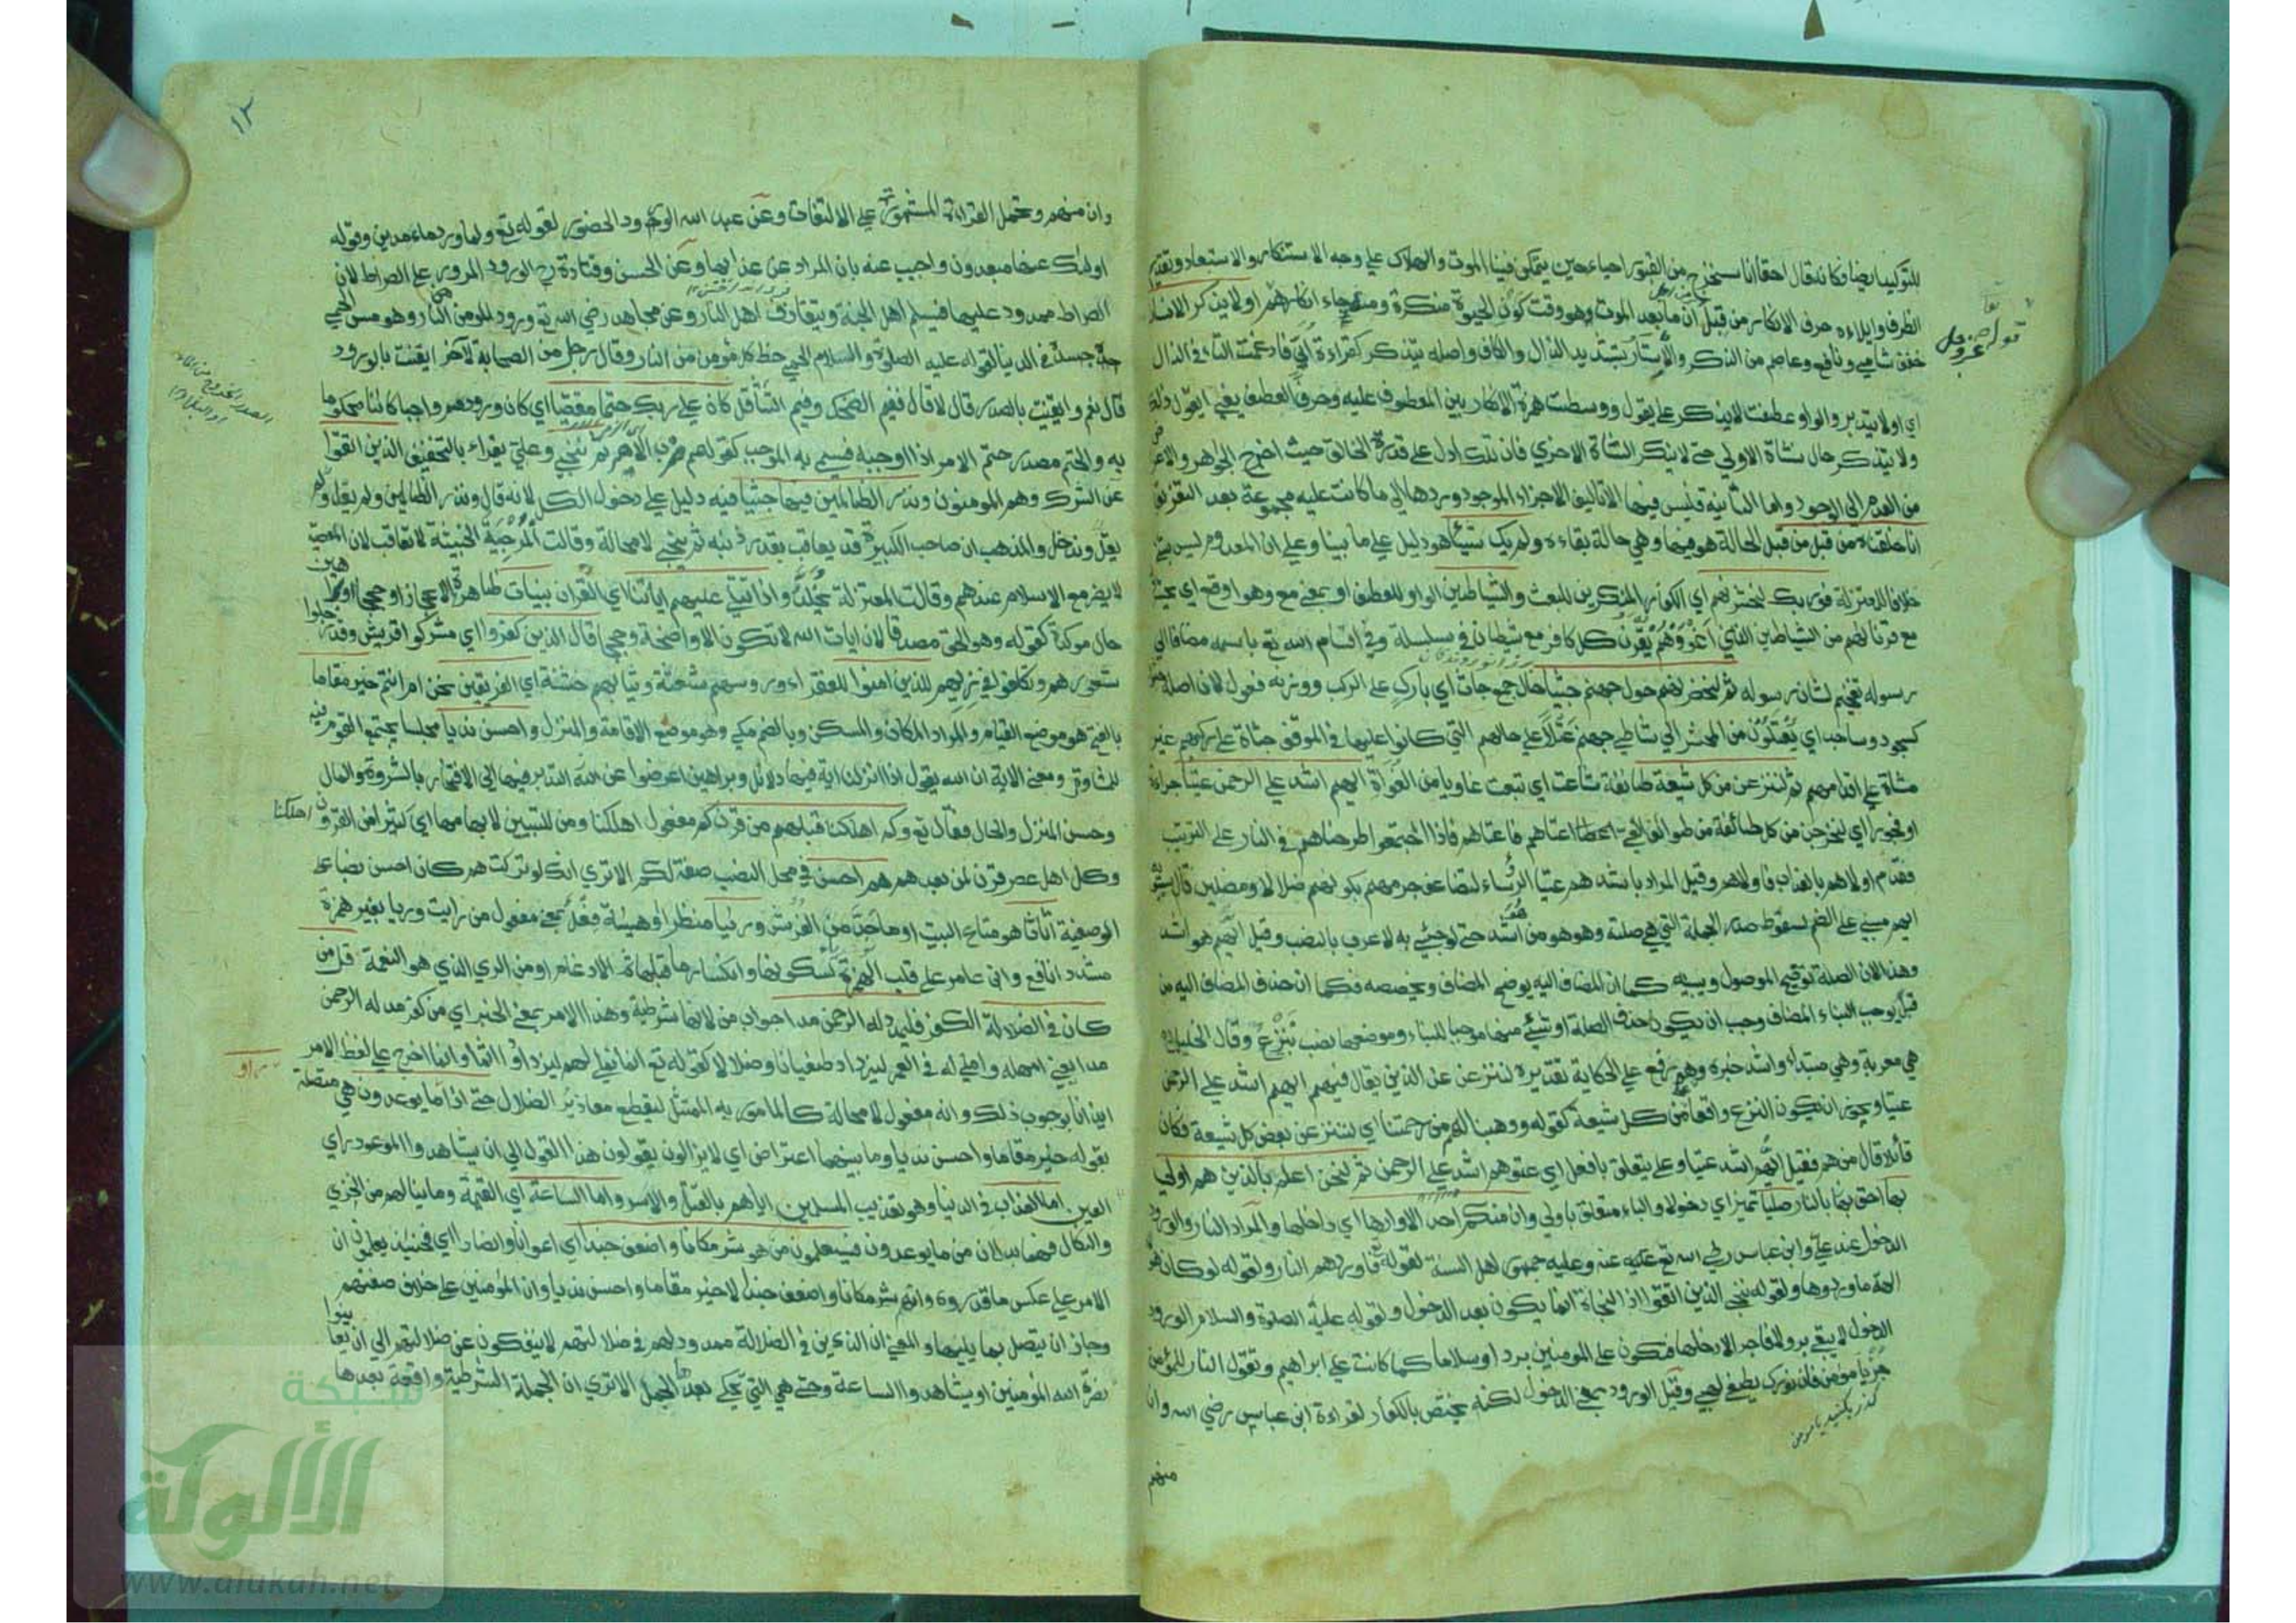 للتوكيد ايضا وكانه قال احقا انا سنخرج من القبور احياء حين يتمكن فينا الموت والهلاك على وجه الاستنكار والاستبعاد وتقديم
الظرف وايلاءه حرف الانكار من قبل ان ما بعد الموت هو وقت كون الحيوة منكرة ومنه جاء انكارهم اولا يذكر الانسان
خفف شامي ونافع وعاصم من الذكر والاستار بتشديد الذال والكاف واصله يتذكر كقراءة ابي فادغمت التاء في الذال
اي اولا يتدبر والواو عطفت لا يذكر على يقول ووسطت همزة الانكار بين المعطوف عليه وحرف العطف يعني ايقول ذلك
ولا يتذكر حال نشاة الاولى حتى لا ينكر النشاة الاخرى فان تلك ادل على قدرة الخالق حيث اخرج الجواهر والاعراض
من العدم الى الوجود واما الثانية فليس فيها الا تاليف الاجزاء الموجودة وردها الى ما كانت عليه مجموعة بعد التفريق
انا خلقناه من قبل من قبل الحالة هو فيها وهي حالة بقاءه ولم يك شيئا هو دليل على ما بينا وعلى ان المعدوم ليس بشئ
خلافا للمعتزلة فوربك لنحشرنهم اي الكفار المنكرين للبعث والشياطين الواو للعطف او بمعنى مع وهو اوقع اي يحشرون
مع قرناءهم من الشياطين الذين اغووهم يقرن كل كافر مع شيطان في سلسلة وفي اقسام الله تع باسمه مضافا الى
رسوله تفخيم لشان رسوله ثم لنحضرنهم حول جهنم جثيا حال جمع جاث اي بارك على الركب ووزنه فعول لان اصله
كسجود وساجد اي يقتلون من المحشر الى شاطي جهنم عتلا على حالهم التي كانوا عليها في الموقف جثاة على ركبهم غير
مشاة على اقدامهم ثم لننزعن من كل شيعة طائفة شاعت اي تبعت غاويا من الغواة ايهم اشد على الرحمن عتيا جراءة
او فجورا اي لنخرجن من كل طائفة من طوائف الغي اعتاهم فاعتاهم فاذا اجتمعوا طرحناهم في النار على الترتيب
فقدم اولاهم بالعذاب فاولاهم وقيل المراد باشدهم عتيا الرؤساء لتضاعف جرمهم بكونهم ضلالا ومضلين قال سيبويه
ايهم مبني على الضم لسقوط صدر الجملة التي هي صلته وهو هو من اشد حتى لوجيء به لاعرب بالنصب وقيل ايهم هو اشد
وهذا لان الصلة توضح الموصول وتبينه كما ان المضاف اليه يوضح المضاف ويخصصه فكما ان حذف المضاف اليه من
قبل يوجب البناء المضاف وجب ان يكون حذف الصلة او شيء منها موجبا للبناء وموضعها نصب بننزع وقال الخليل
هي معربة وهي مبتداء واشد خبره وهم رفع على الحكاية تقديره لننزعن عن الذين يقال فيهم ايهم اشد على الرحمن
عتيا ويجوز ان يكون النزع واقعا من كل شيعة كقوله ووهبنا لهم من رحمتنا اي لننزعن بعض كل شيعة فكان
قائلا قال من هم فقيل ايهم اشد عتيا وعلى يتعلق بافعل اي عتوهم اشد على الرحمن ثم لنحن اعلم بالذين هم اولى
بها احق بها بالنار صليا تمييز اي دخولا والباء متعلق باولى وان منكم احد الا واردها اي داخلها والمراد النار والورود
الدخول عند علي وابن عباس رضي الله تع عنه وعليه جمهور اهل السنة لقوله فاوردهم النار ولقوله لو كان هؤلاء
الهة ما وردوها ولقوله ننجي الذين اتقوا اذ النجاة انما يكون بعد الدخول ولقوله عليه الصلوة والسلام الورود
الدخول لا يبقى بر ولا فاجر الا دخلها فيكون على المومنين بردا وسلاما كما كانت على ابراهيم وتقول النار للمؤمن
جز يا مؤمن فان نورك يطفئ لهبي وقيل الورود بمعنى الدخول لكنه يختص بالكفار لقراءة ابن عباس رضي الله وان
منهم
١٢
وان منهم وتحتمل القراءة المشهورة على الالتفات وعن عبد الله الورود الحضور لقوله تع ولما ورد ماء مدين وقوله
اولئك عنها مبعدون واجيب عنه بان المراد عن عذابها وعن الحسن وقتادة الورود المرور على الصراط لان
الصراط ممدود عليها فيسلم اهل الجنة ويتقاذف اهل النار وعن مجاهد رضي الله تع ورود المومن النار وهو مس الحمى
جسده في الدنيا لقوله عليه الصلوة والسلام الحمى حظ كل مؤمن من النار وقال رجل من الصحابة لآخر ايقنت بالورود
قال نعم وايقنت بالصدر قال لا قال ففيم الضحك وفيم التثاقل كان على ربك حتما مقضيا اي كان ورودهم واجبا كائنا محكوما
به والحتم مصدر حتم الامر اذا اوجبه فسمي به الموجب كقولهم ضرب الامير ثم ننجي وعلي يقراء بالتخفيف الذين اتقوا
عن الشرك وهم المومنون ونذر الظالمين فيها جثيا فيه دليل على دخول الكل لانه قال ونذر الظالمين ولم يقل
يقل وندخل والمذهب ان صاحب الكبيرة قد يعاقب بقدر ذنبه ثم ينجي لا محالة وقالت المرجية الخبيثة لا تعاقب لان المعصية
لا يضر مع الاسلام عندهم وقالت المعتزلة يخلد واذا تتلى عليهم اياتنا اي القران بينات ظاهرة الاعجاز او حججا
حال موكدة كقوله وهو الحق مصدقا لان ايات الله لا تكون الا واضحة وحججا قال الذين كفروا اي مشركوا قريش وقد رجلوا
شعورهم وتكلفوا في زيهم للذين امنوا للفقراء ورؤسهم شعثة وثيابهم خشنة اي الفريقين نحن ام انتم خير مقاما
بالفتح هو موضع القيام والمراد المكان والمسكن وبالضم مكي وهو موضع الاقامة والمنزل واحسن نديا مجلسا يجتمع القوم فيه
للمشاورة ومعنى الاية ان الله يقول اذا انزلنا اية فيها دلائل وبراهين اعرضوا عن التدبر فيها الى الافتخار بالثروة والمال
وحسن المنزل والحال فقال تع وكم اهلكنا قبلهم من قرن كم مفعول اهلكنا ومن للتبيين لابهامها اي كثيرا من القرون اهلكنا
وكل اهل عصر قرن لمن بعدهم هم احسن في محل النصب صفة لكم الاترى انك لو تركت هم كان احسن نصبا على
الوصفية اثاثا هو متاع البيت او ما جد من الفرش ورئيا منظرا وهيئة فعل بمعنى مفعول من رايت وريا بغير همزة
مشددا نافع وابن عامر على قلب الهمزة لسكونها وانكسار ما قبلها ثم الادغام او من الري الذي هو النعمة قل من
كان في الضلالة الكفر فليمدد له الرحمن مدا جواب من لانها شرطية وهذا الامر بمعنى الخبر اي من كفر مد له الرحمن
مدا يعني امهله واملى له في العمر ليزداد طغيانا وضلالا كقوله تع انما نملي لهم ليزدادوا اثما وانما اخرج على لفظ الامر
ايذانا بوجوب ذلك وانه مفعول لا محالة كالمامور به الممتثل ليقطع معاذير الضلال حتى اذا راوا ما يوعدون هي متصلة
بقوله خير مقاما واحسن نديا وما بينهما اعتراض اي لا يزالون يقولون هذا القول الى ان يشاهدوا الموعود راي
العين اما العذاب في الدنيا وهو تعذيب المسلمين اياهم بالقتل والاسر واما الساعة اي القيمة وما ينالهم من الخزي
والنكال فهما بدلان من ما يوعدون فسيعلمون من هو شر مكانا واضعف جندا اي اعوانا وانصارا اي فحينئذ يعلمون ان
الامر على عكس ما قدروه وانهم شر مكانا واضعف جندا لا خير مقاما واحسن نديا وان المؤمنين على خلاف صفتهم
وجاز ان يتصل بما يليها والمعنى ان الذين في الضلالة ممدود لهم في ضلالتهم لا ينفكون عن ضلالتهم الى ان يعاينوا
نصرة الله المؤمنين او يشاهدوا الساعة وحتى هي التي يحكى بعدها الجمل الاترى ان الجملة الشرطية واقعة بعدها
شبكة
الألوكة
www.alukah.net